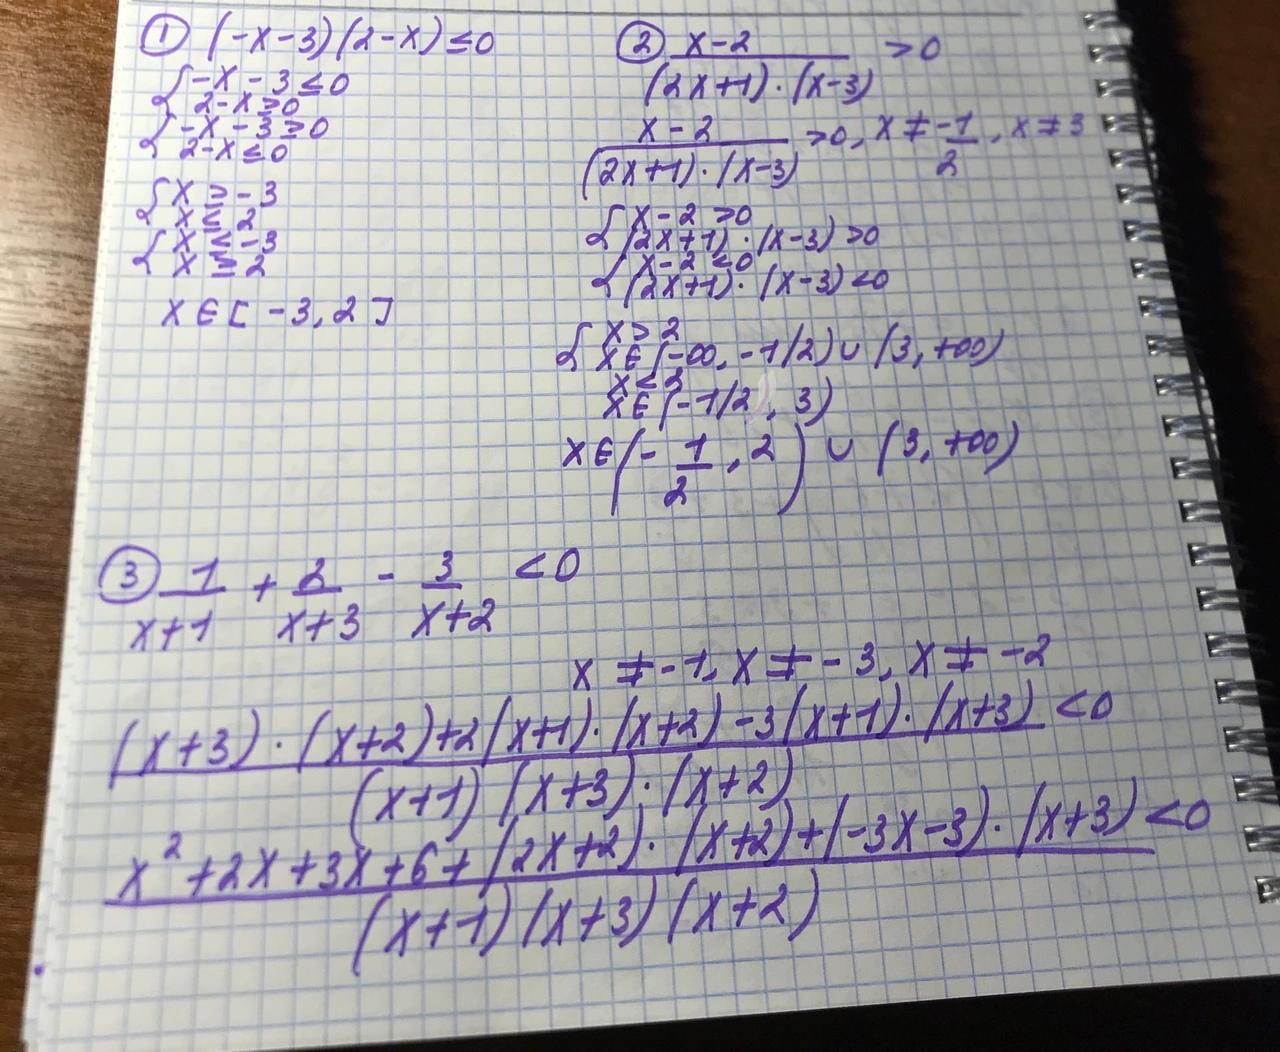 ① (-x-3)(2-x)≤0
{-x-3≤0
2-x≥0
{-x-3≥0
2-x≤0
{x≥-3
x≤2
{x≤-3
x≥2
x∈[-3,2]
② x-2 >0
(2x+1)·(x-3)
x-2 >0, x≠-1/2, x≠3
(2x+1)·(x-3)
{x-2>0
(2x+1)·(x-3)>0
{x-2<0
(2x+1)·(x-3)<0
{x>2
x∈(-∞,-1/2)∪(3,+∞)
x<2
x∈(-1/2,3)
x∈(-1/2,2)∪(3,+∞)
③ 1/x+1 + 2/x+3 - 3/x+2 <0
x≠-1, x≠-3, x≠-2
(x+3)·(x+2)+2(x+1)·(x+2)-3(x+1)·(x+3) <0
(x+1)(x+3)·(x+2)
x²+2x+3x+6+(2x+2)·(x+2)+(-3x-3)·(x+3) <0
(x+1)(x+3)(x+2)